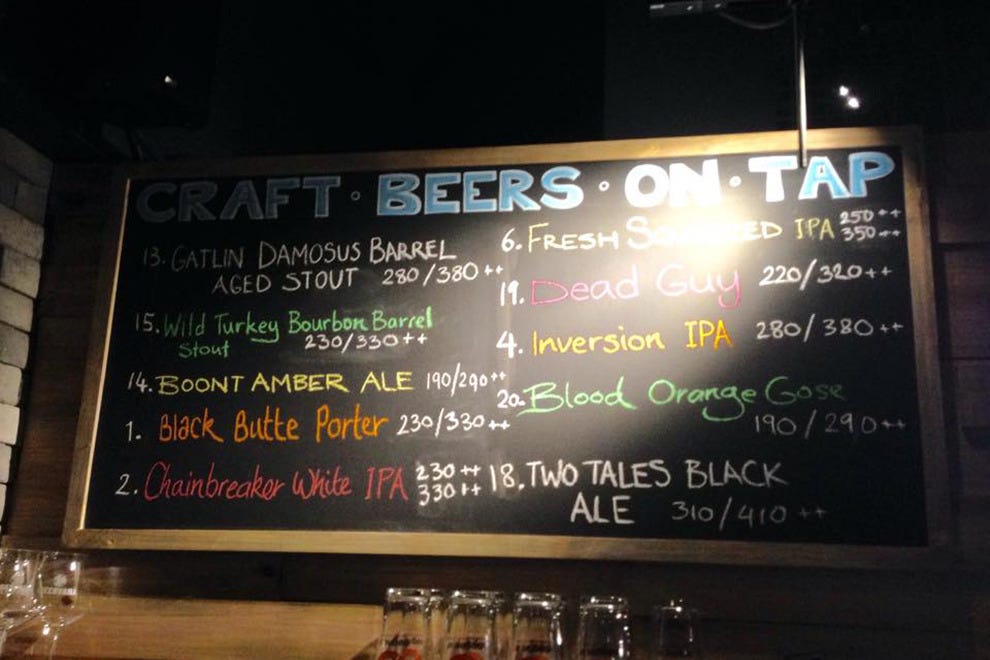 CRAFT · BEERS · ON · TAP
13. GATLIN DAMOSUS BARREL
AGED STOUT 280/380++
15. Wild Turkey Bourbon Barrel
Stout 230/330++
14. BOONT AMBER ALE 190/290++
1. Black Butte Porter 230/330++
2. Chainbreaker White IPA 230++
330++
6. FRESH SQUEEZED IPA 250++
350++
19. Dead Guy 220/320++
4. Inversion IPA 280/380++
20. Blood Orange Gose
190/290++
18. TWO TALES BLACK
ALE 310/410++